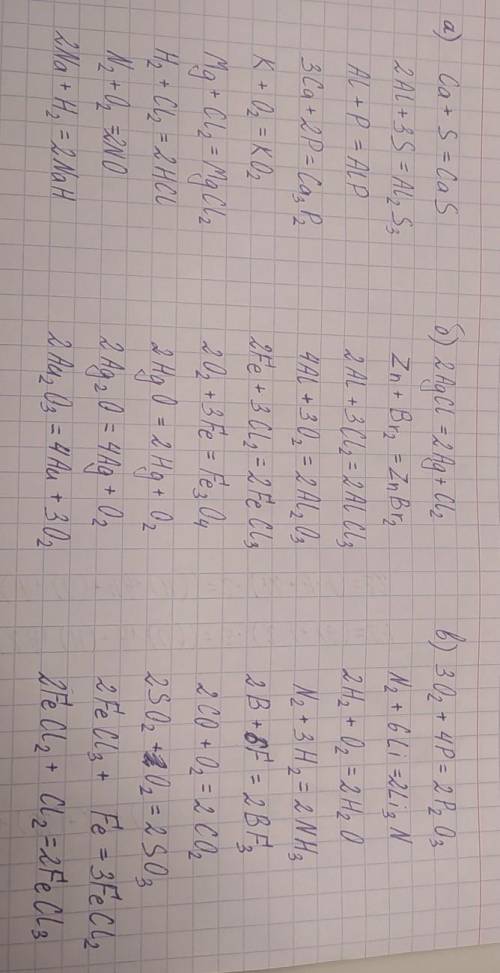 а) Ca + S = CaS
2Al + 3S = Al₂S₃
Al + P = AlP
3Ca + 2P = Ca₃P₂
K + O₂ = KO₂
Mg + Cl₂ = MgCl₂
H₂ + Cl₂ = 2HCl
N₂ + O₂ = 2NO
2Na + H₂ = 2NaH
б) 2AgCl = 2Ag + Cl₂
Zn + Br₂ = ZnBr₂
2Al + 3Cl₂ = 2AlCl₃
4Al + 3O₂ = 2Al₂O₃
2Fe + 3Cl₂ = 2FeCl₃
2O₂ + 3Fe = Fe₃O₄
2HgO = 2Hg + O₂
2Ag₂O = 4Ag + O₂
2Au₂O₃ = 4Au + 3O₂
в) 3O₂ + 4P = 2P₂O₃
N₂ + 6Li = 2Li₃N
2H₂ + O₂ = 2H₂O
N₂ + 3H₂ = 2NH₃
2B + 6F = 2BF₃
2CO + O₂ = 2CO₂
2SO₂ + O₂ = 2SO₃
2FeCl₃ + Fe = 3FeCl₂
2FeCl₂ + Cl₂ = 2FeCl₃